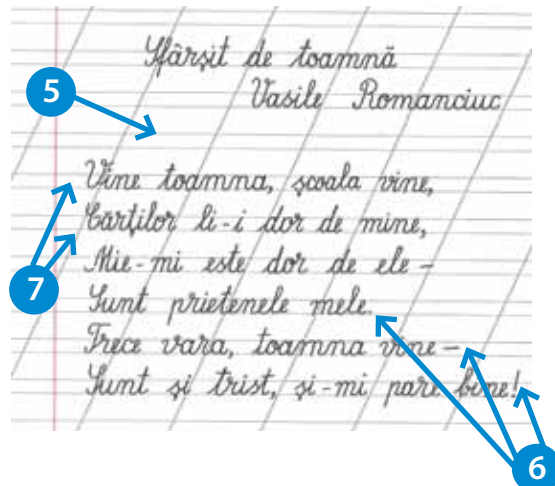 Sfârșit de toamnă
Vasile Romanciuc
5
Vine toamna, școala vine,
Cărților li-i dor de mine,
Mie-mi este dor de ele –
7
Sunt prietenele mele.
Trece vara, toamna vine –
Sunt și trist, și-mi pare bine!
6